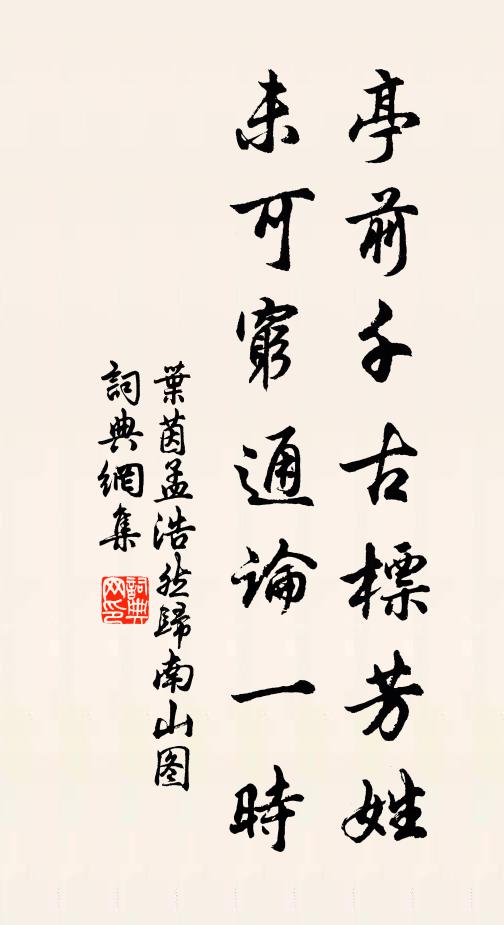 亭前千古標芳姓
未可窮通論一時
葉茵孟浩然歸南山图
詞典網集
詞典網印